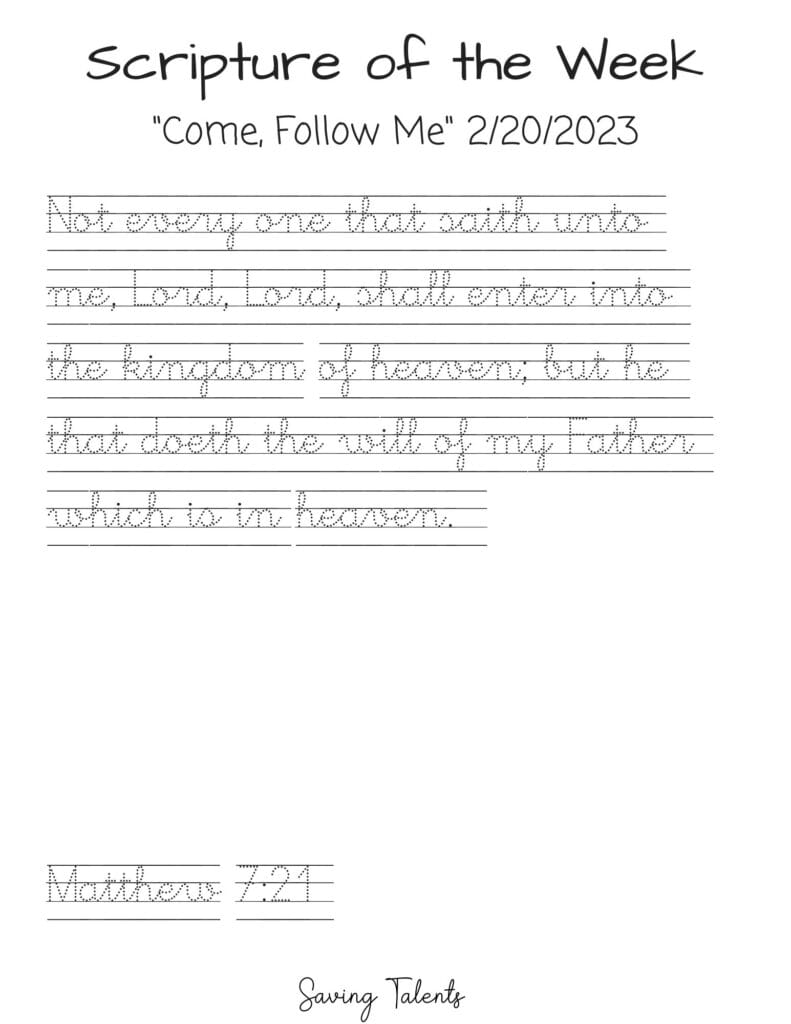 Scripture of the Week
"Come, Follow Me" 2/20/2023
Not every one that saith unto
me, Lord, Lord, shall enter into
the kingdom of heaven; but he
that doeth the will of my Father
which is in heaven.
Matthew 7:21
Saving Talents